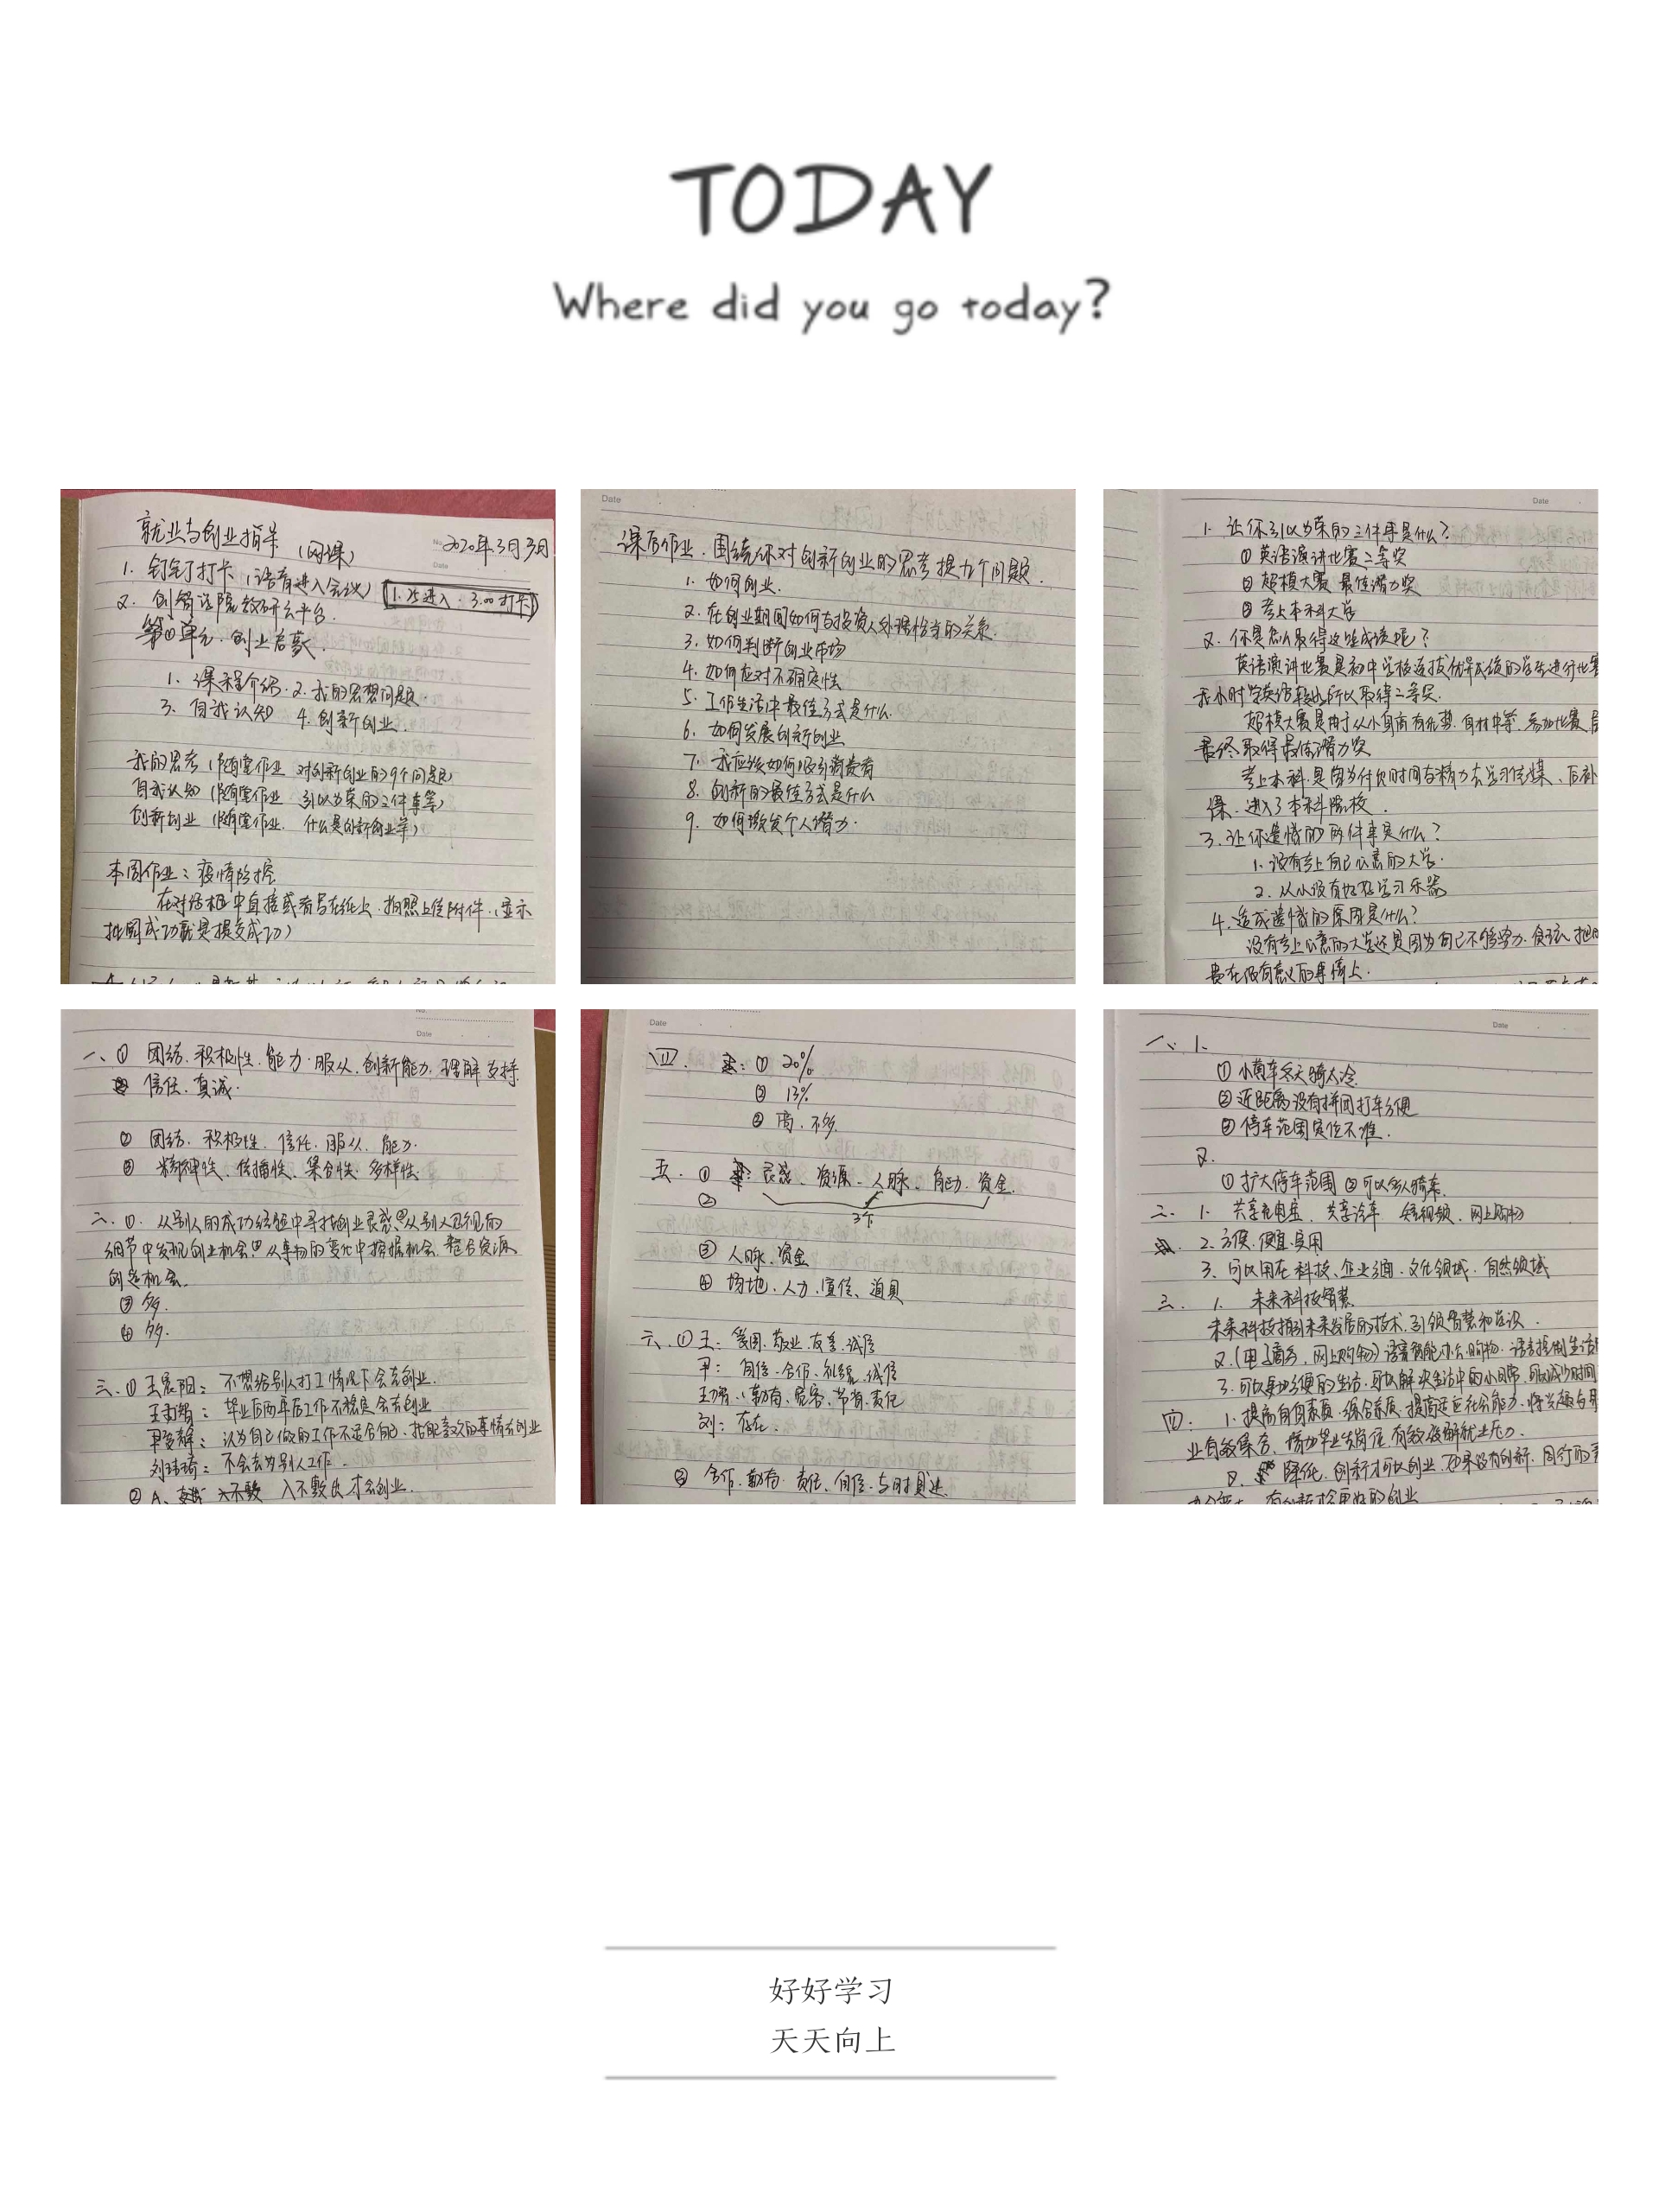 TODAY
Where did you go today?
就业与创业指导 (网课)
2020年3月3日
1. 钉钉打卡 (语音进入会议) 1.25进入 3.00打卡
2. 创销法院教研云平台
第①单元. 创业启蒙.
1. 课程介绍. 2. 我的思想问题.
3. 自我认知 4. 创新创业.
我的思考 (随堂作业 对创新创业的9个问题)
自我认知 (随堂作业 引以为荣的三件事等)
创新创业 (随堂作业. 什么是创新创业等)
本周作业: 疫情防控
在对话框中直接或者写在纸上. 拍照上传附件. (显示
批阅成功就是提交成功)
Date
课后作业. 围绕你对创新创业的思考提九个问题.
1. 如何创业.
2. 在创业期间如何与投资人处理恰当的关系.
3. 如何判断创业市场
4. 如何应对不确定性
5. 工作生活中最佳方式是什么.
6. 如何发展创新创业
7. 我应该如何吸引消费者
8. 创新的最佳方式是什么
9. 如何激发个人潜力.
Date
1. 让你引以为荣的三件事是什么?
① 英语演讲比赛二等奖
② 超模大赛 最佳潜力奖
③ 考上本科大学
2. 你是怎么取得这些成读呢?
英语演讲比赛是初中学校选拔优异成绩的学生进行比赛
我小时学英语较出所以取得二等奖.
超模大赛是由于从小身高有优势. 身材中等. 参加比赛.
最终取得最佳潜力奖
考上本科. 是因为付欠时间与精力去学习传媒、后补
课. 进入了本科院校.
3. 让你遗憾的两件事是什么?
1. 没有考上自己心意的大学.
2. 从小没有好好学习乐器
4. 造成遗憾的原因是什么?
没有考上心意的大学还是因为自己不够努力. 贪玩. 把
费在没有意义的事情上.
Date
一、① 团结. 积极性. 能力. 服从. 创新能力. 理解 支持.
信任. 真诚.
② 团结. 积极性. 信任. 服从. 能力.
③ 精神性、传播性、集合性. 多样性.
二. ①. 从别人的成功经验中寻找创业灵感. 从别人忽视的
细节中发现创业机会. 从事物的变化中捕捉机会. 整合资源
创造机会.
③ 多.
④ 多.
三. ① 王晨阳: 不想给别人打工情况下会去创业.
毕业后两年后工作不稳定会去创业
认为自己做的工作不适合自己. 找跟喜欢的事情去创业
不会去为别人工作.
② A. 入不敷出才会创业.
Date
四. ① 20%
② 13%
③ 高. 不多.
五. ① 灵感、资源、人脉、能力. 资金.
②
3个
③ 人脉. 资金
④ 场地. 人力. 宣传、道具
六. ① 王: 爱国. 敬业. 友善. 诚信
尹: 自信. 合作. 礼貌. 诚信
勤奋. 宽容. 节省. 责任
刘: 存在.
② 合作. 勤奋. 责任. 自信. 与时具进.
Date
一. 1.
① 小黄车冬天骑太冷
② 近距离没有拼团打车方便
③ 停车范围定位不准.
2.
① 扩大停车范围 ② 可以多人骑车.
二. 1. 共享充电宝. 共享汽车 短视频. 网上购物
2. 方便. 便宜. 实用
3. 可以用在科技、企业方面. 文化领域. 自然领域
三. 1. 未来科技智慧
未来科技指引未来发展的技术. 引领智慧和意识.
2. (电子商务, 网上购物) 语音智能办公购物. 语音控制生活
3. 可以更加方便的生活. 可以解决生活中的小日常. 可以减少时间
四: 1. 提高自身素质. 综合素质. 提高适应社会能力. 将兴趣与
业有效集合. 增加毕业生岗位. 有效缓解就业压力.
2. 降低. 创新才可以创业. 如果没有创新. 同行的
有创新才会更好的创业
好好学习
天天向上